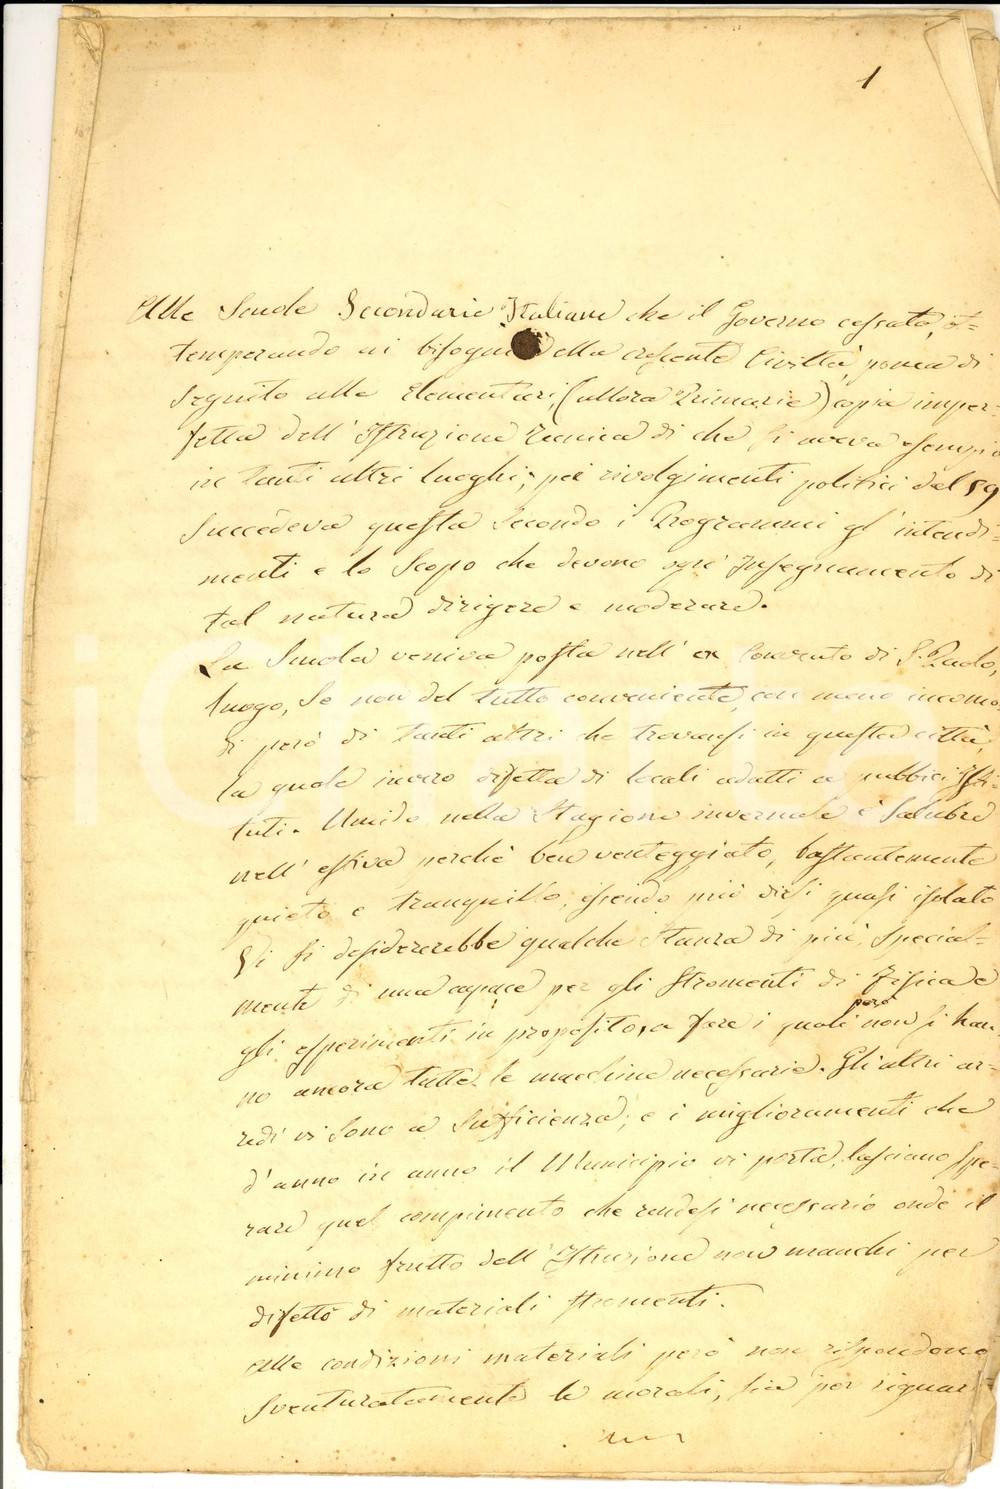 1
Alle Scuole Secondarie Italiane che il Governo cessato, ot=
temperando ai bisogni della crescente Civiltà, poneva di
seguito alle Elementari, (allora Primarie) copia imper-
fetta dell' Istruzione Tecnica di che si aveva esempio
in tanti altri luoghi; pei rivolgimenti politici del 59
succedeva questa secondo i Programmi gl' intendi=
menti e lo Scopo che devono ogni Insegnamento di
tal natura dirigere e moderare.
La Scuola veniva posta nell' ex Convento di S. Paolo,
luogo, se non del tutto conveniente, con meno incomo
di però di tanti altri che trovansi in questa città,
la quale invero difetta di locali adatti a pubblici Isti-
tuti. Umido nella Stagione invernale è salubre
nell' estiva perchè ben venteggiato, bastantemente
quieto e tranquillo, essendo può dirsi quasi isolato
Vi si desidererebbe qualche stanza di più, special=
mente di una capace per gli stromenti di Fisica e
gli esperimenti in proposito, a fare i quali però non si han
no ancora tutte le macchine necessarie. Gli altri ar-
redi vi sono a sufficienza; e i miglioramenti che
d'anno in anno il Municipio vi porta, lasciano spe-
rare quel compimento che rendesi necessario onde il
minimo frutto dell' Istruzione non manchi per
difetto di materiali stromenti.
Alle condizioni materiali però non rispondono
sventuratamente le morali, sia per riguar